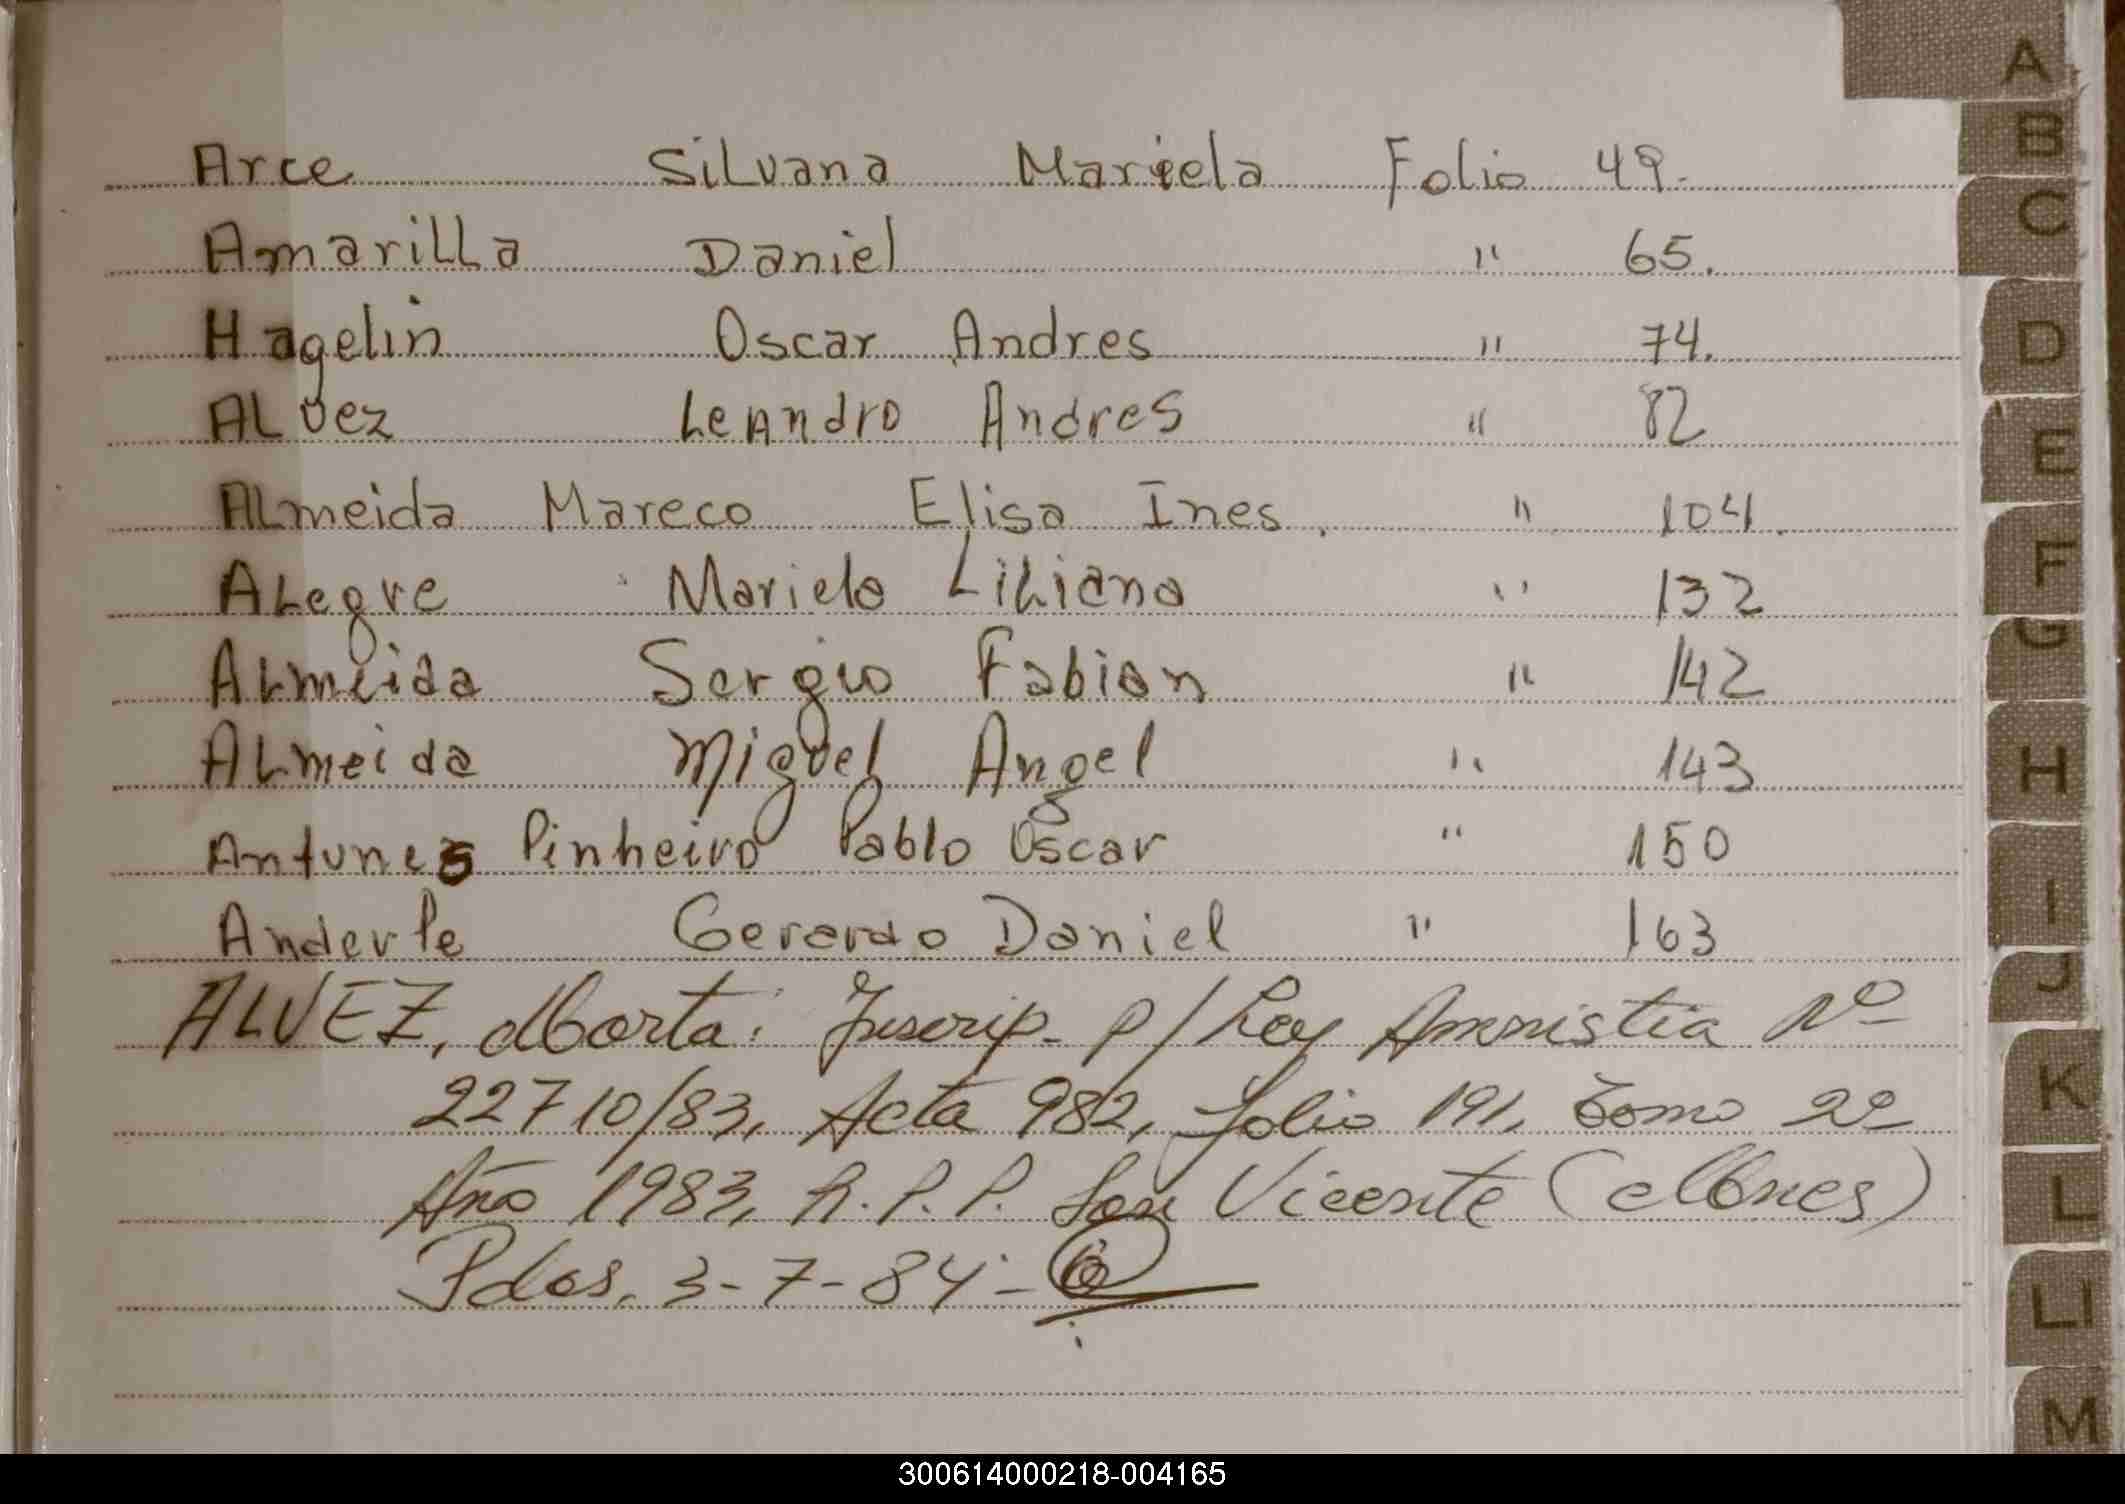 Arce Silvana Mariela Folio 49.
Amarilla Daniel " 65.
Hagelin Oscar Andres " 74.
ALvez Leandro Andres " 82
ALmeida Mareco Elisa Ines. " 104.
ALegre Mariela Liliana " 132
ALmeida Sergio Fabian " 142
ALmeida Miguel Angel " 143
Antunes Pinheiro Pablo Oscar " 150
Anderle Gerardo Daniel " 163
ALVEZ, Marta: Inscrip. p/Ley Amnistia Nº
22710/83, Acta 982, folio 191, Tomo 2º
Año 1983, R.P.P. San Vicente (Mnes)
Pdas. 3-7-84-
A
B
C
D
E
F
G
H
I
J
K
L
LI
M
300614000218-004165